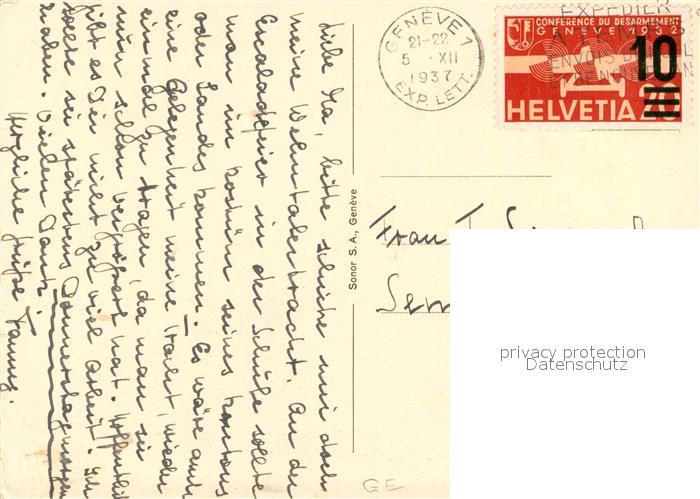 Liebe Ma, bitte schicke mir doch
meine Wehntalertracht. An der
Escaladefeier in der Schule sollte
man im Kostüm seines Kantons
oder Landes kommen. Es wäre auch
eine Gelegenheit meine Tracht wieder
einmal zu tragen, da man sie
nun schon vergrößert hat. Hoffentlich
gibt es Dir nicht zu viel Arbeit. Ich
sollte sie spätestens Donnerstagmorgen
haben. Vielen Dank!
Herzliche Grüße Fanny.
Sonor S. A., Genève
GENÈVE 1
21-22
5 · XII
1937
EXP. LETT.
EXPEDIER
ENVOIS
CONFERENCE DU DESARMEMENT
GENEVE 1932
10
HELVETIA 20
Frau
privacy protection
Datenschutz
GE